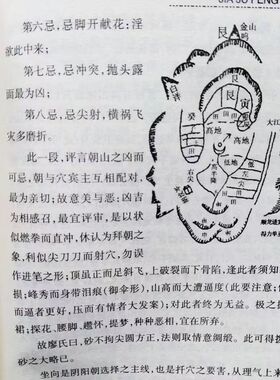 JIA JU FENG
第六忌，忌脚开献花：淫
欲此中来；
第七忌，忌冲突，抛头露
面最为凶；
第八忌，忌尖射，横祸飞
灾多磨折。
此一段，评言朝山之凶而
可忌，朝与穴宾主互相配对，
最为亲切；故意美与恶；凶吉
为相感召，最宜评审，是以状
似燃拳而直冲，休认为拜朝之
象，利似尖刀刀而射穴，勿误
作进笔之形；顶虽正而足斜飞，上破裂而下骨陷，逢此者须知
损；峰秀而身带泪痕（御伞形），山高而大遭逼度（此要注意：
而逼者更好，压而有情者大发案）；对此者终为无益。极之
裙；探花、腰脚、趱怀、提梦，种种恶相，宜在所弃。
故廖氏曰，砂不拘尖圆方正，法则取情意绸缎。此可得
砂之大略已。
坐向是阴阳朝选择之主线，也是扦穴之要害，从理气上来
艮
金山
鸣
艮
寅
甲
大江
白
癸
高地
高地
低
低地
右
尖
左
尖
田